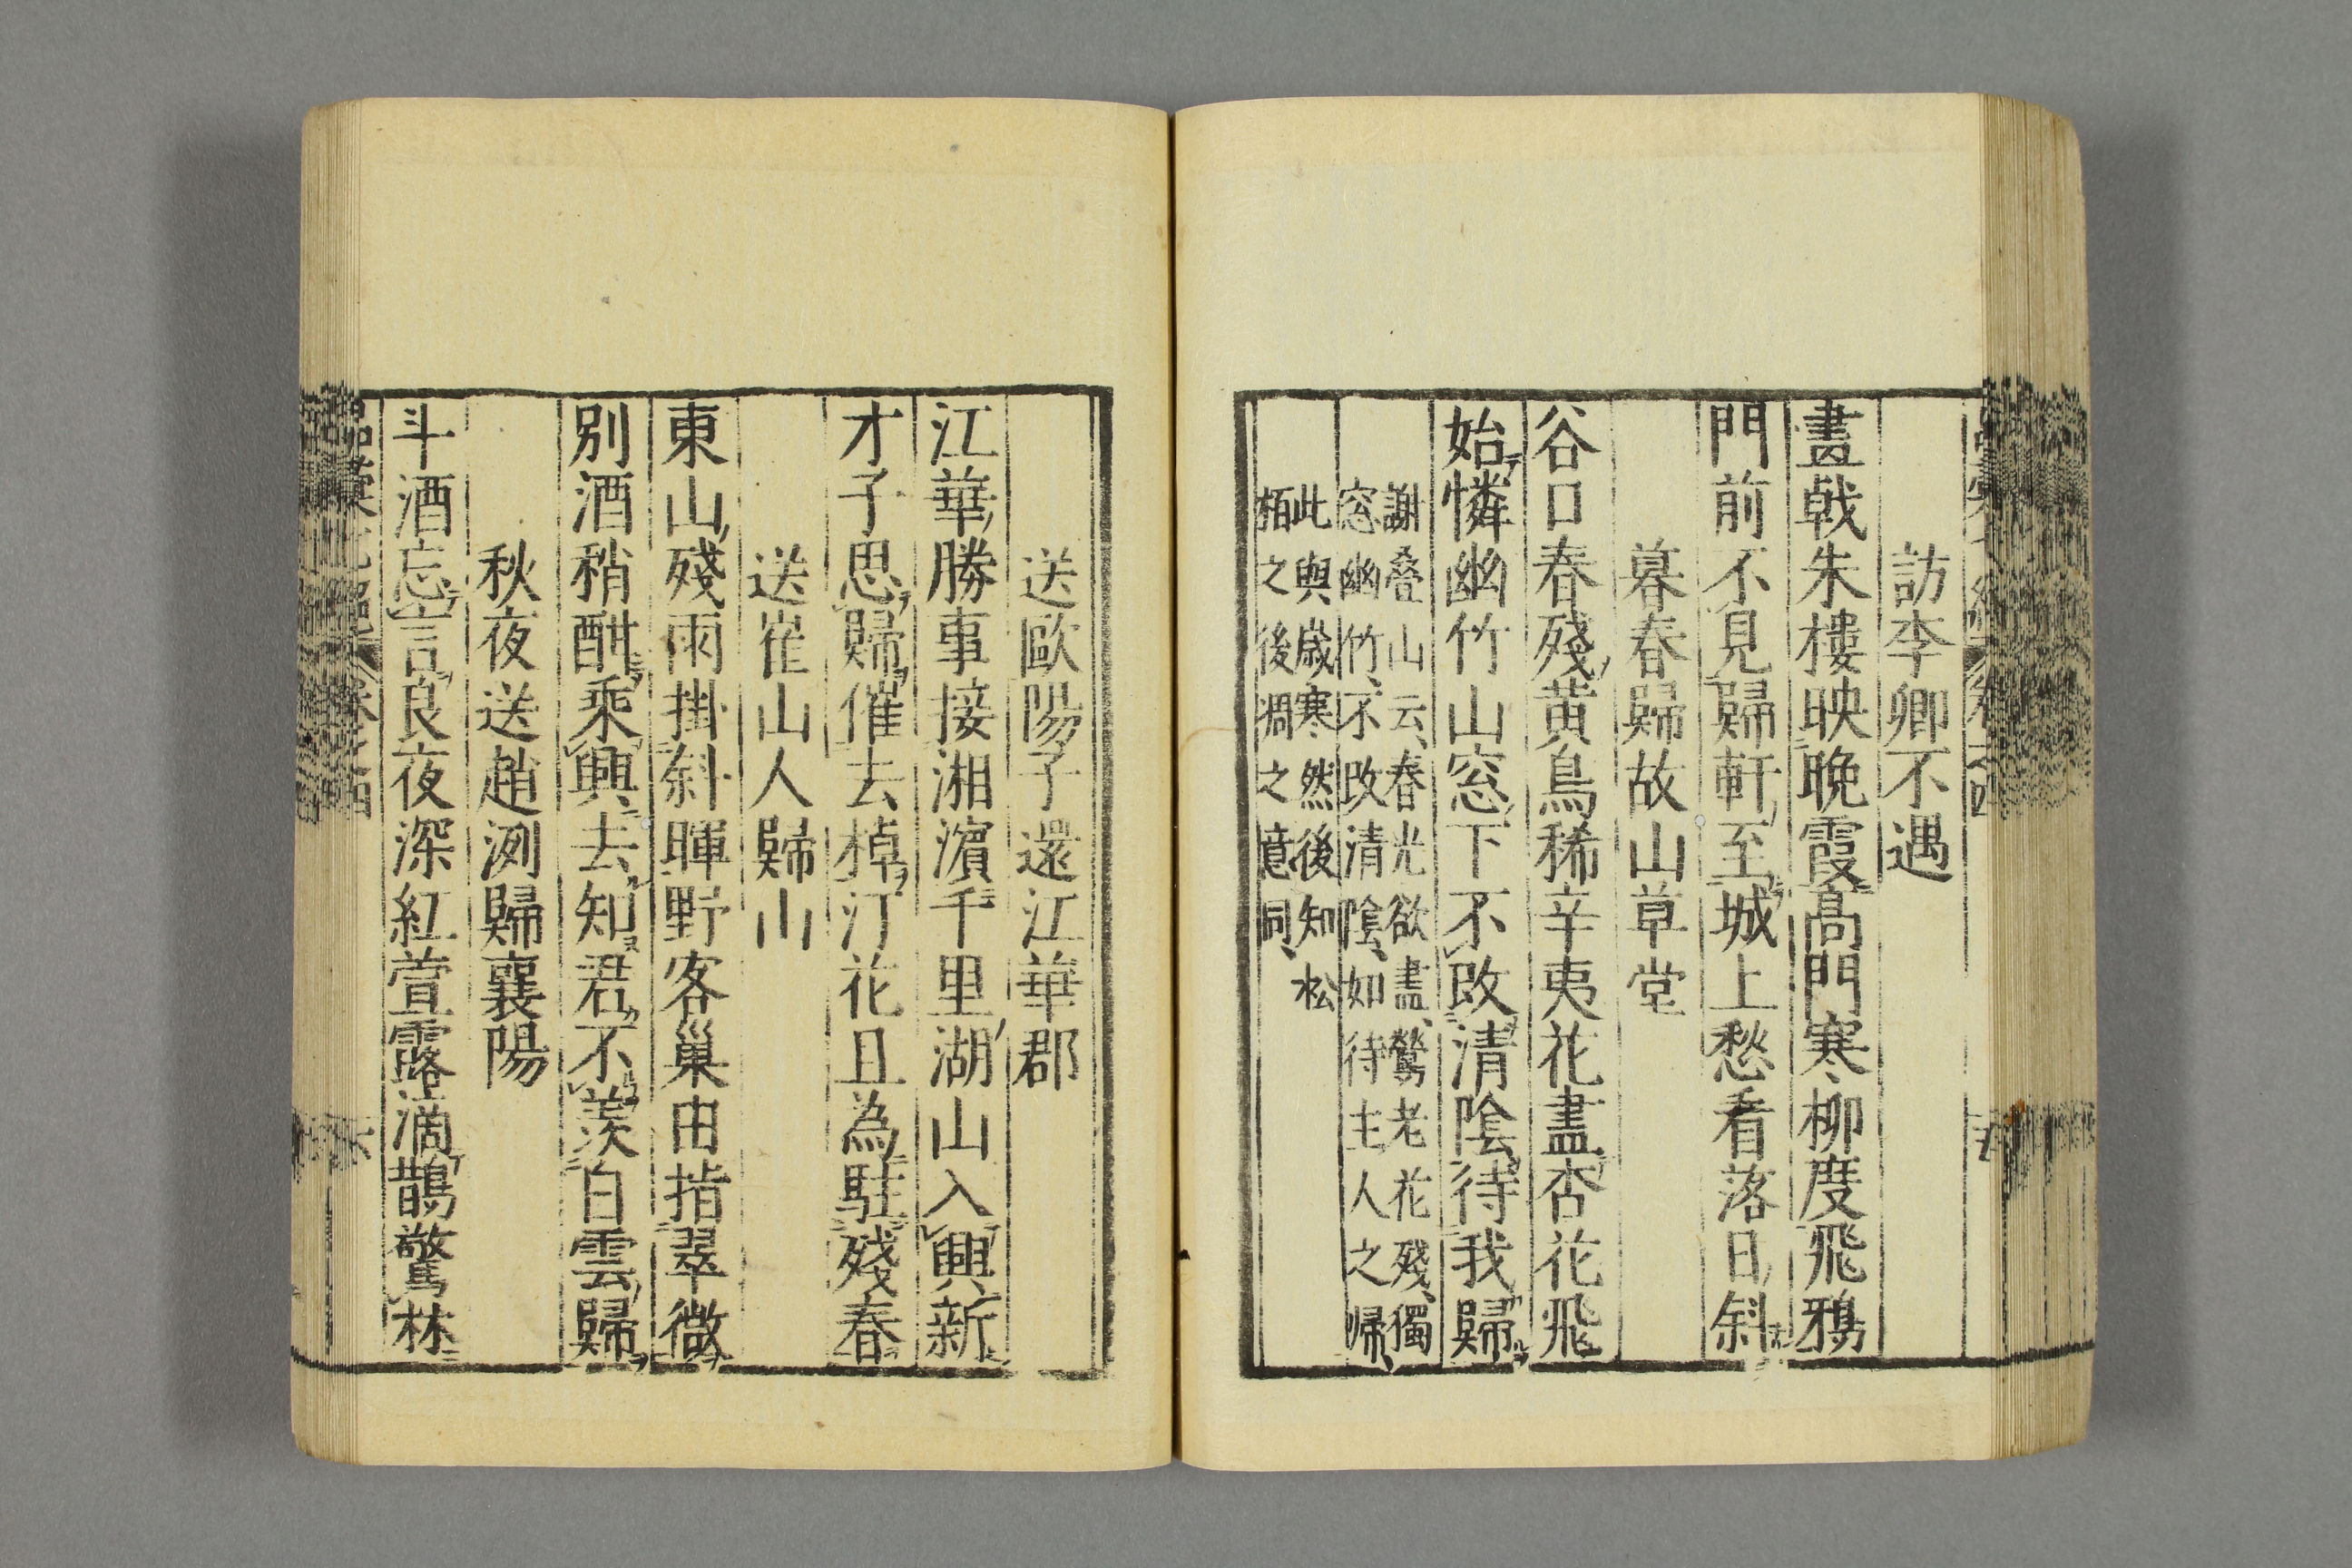 訪李卿不遇
畫戟朱樓映晩霞高門寒柳度飛鴉
門前不見歸軒至城上愁看落日斜
暮春歸故山草堂
谷口春殘黄鳥稀辛夷花盡杏花飛
始憐幽竹山窓下不改清陰待我歸
謝叠山云春光欲盡鶯老花殘獨
窓幽竹不改清陰如待主人之帰
此與歳寒然後知松
栢之後凋之意同
送歐陽子還江華郡
江華勝事接湘濵千里湖山入興新
才子思歸催去棹汀花且為駐殘春
送崔山人歸山
東山殘雨掛斜暉野客巢由指翠微
別酒稍酣乘興去知君不羨白雲歸
秋夜送趙洌歸襄陽
斗酒忘言良夜深紅萱露滴鵲驚林